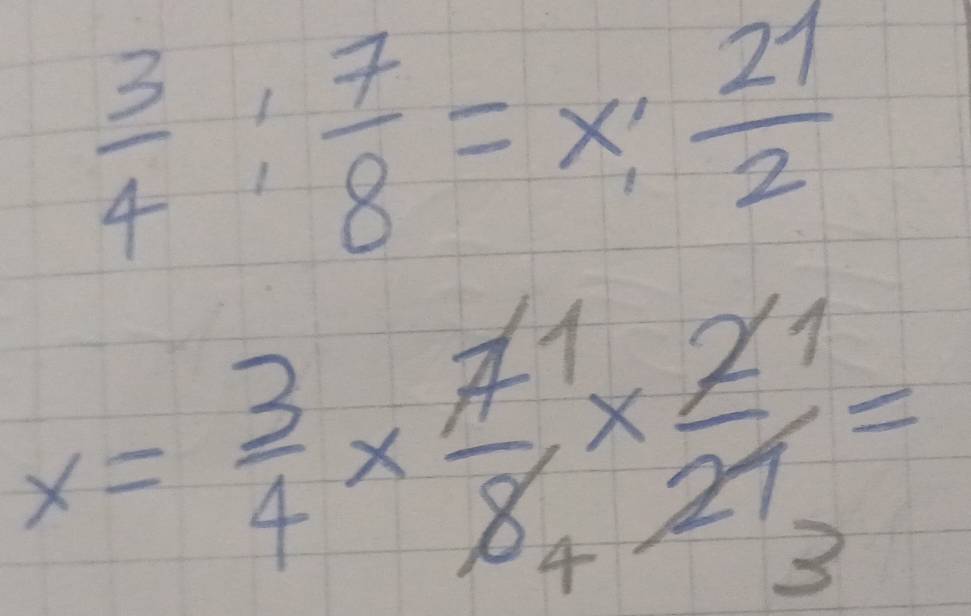 3/4 : 7/8 = x : 21/2
x = 3/4 × 7/8 × 2/21 = 1 4 1 3